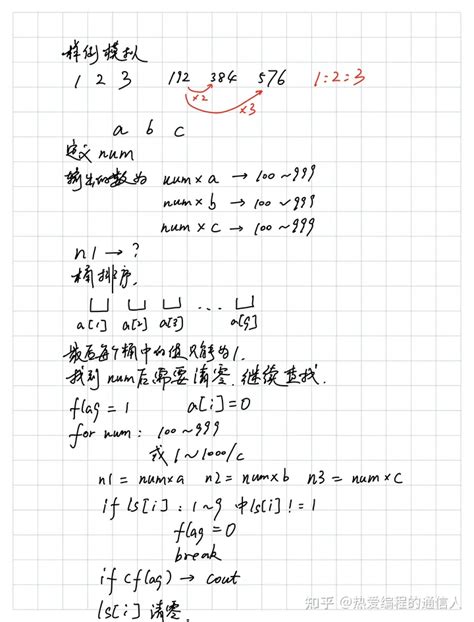 样例模拟
1 2 3 192 384 576 1:2:3
×2
×3
a b c
定义 num
输出的数为 num×a → 100~999
num×b → 100~999
num×c → 100~999
n1 → ?
桶排序.
a[1] a[2] a[3] ... a[9]
最后每个桶中的值只能为1.
找到num后需要清零.继续查找.
flag=1 a[i]=0
for num: 100~999
或 1~1000/c
n1=num×a n2=num×b n3=num×c
if ls[i]: 1~9 中ls[i]!=1
flag=0
break
if (flag) → cout
ls[i] 清零.
知乎 @热爱编程的通信人